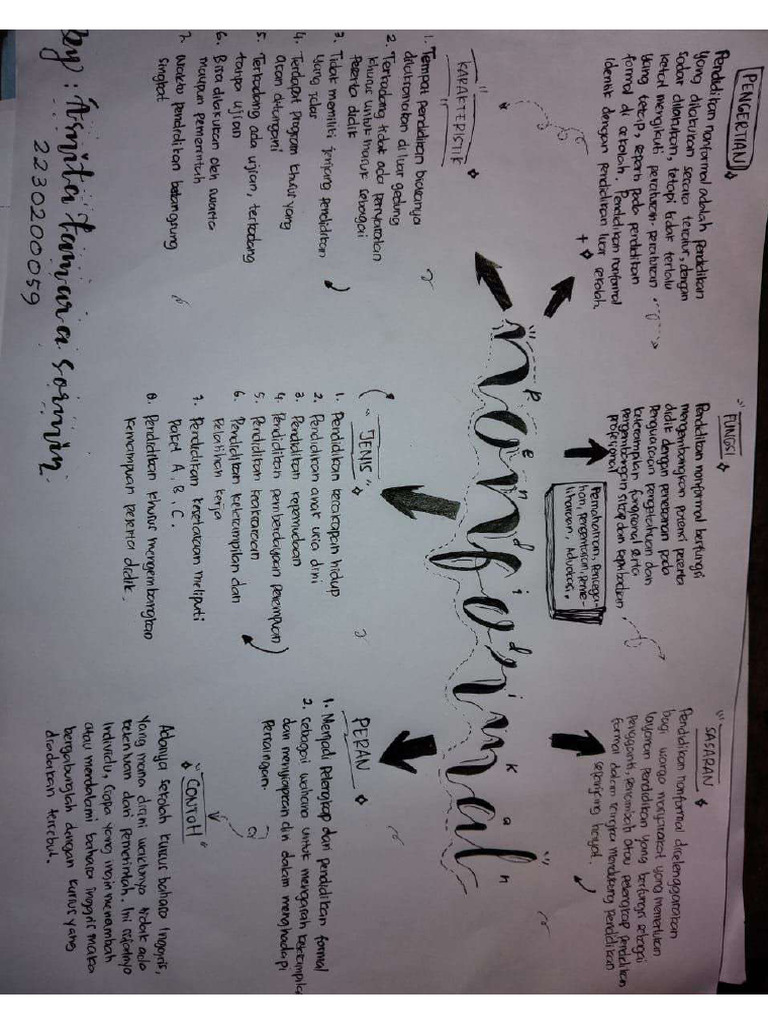 PENGERTIAN
Pendidikan nonformal adalah pendidikan
yang dilakukan secara teratur, dengan
sadar dilakukan, tetapi tidak terlalu
ketat mengikuti peraturan-peraturan
yang tetap, seperti pada pendidikan
formal di sekolah. Pendidikan nonformal
identik dengan pendidikan luar sekolah.
"FUNGSI
Pendidikan nonformal berfungsi
mengembangkan potensi peserta
didik dengan penekanan pada
Penguasaan pengetahuan dan
keterampilan fungsional serta
pengembangan sikap dan kepribadian
profesional
"SASARAN
Pendidikan nonformal diselenggarakan
bagi warga masyarakat yang memerlukan
layanan pendidikan yang berfungsi sebagai
pengganti, penambah atau pelengkap pendidikan
formal dalam rangka mendukung pendidikan
sepanjang hayat.
Pemahaman, Pencega-
han, pengentasan, peme-
liharaan, Advokasi.
pendidikan
nonformal
KARAKTERISTIK
1. Tempat pendidikan biasanya
dilaksanakan di luar gedung
2. Terkadang tidak ada persyaratan
khusus untuk masuk sebagai
peserta didik
3. Tidak memiliki jenjang pendidikan
yang jelas
4. Terdapat program khusus yang
akan ditangani
5. Terkadang ada ujian, terkadang
tanpa ujian
6. Bisa dilakukan oleh swasta
maupun pemerintah
7. Waktu pendidikan berlangsung
singkat
"JENIS"
1. Pendidikan kecakapan hidup
2. Pendidikan anak usia dini
3. Pendidikan kepemudaan
4. Pendidikan pemberdayaan perempuan
5. Pendidikan keaksaraan
6. Pendidikan keterampilan dan
Pelatihan kerja
7. Pendidikan kesetaraan meliputi
Paket A, B, C.
8. Pendidikan khusus mengembangkan
kemampuan peserta didik.
PERAN
1. Menjadi pelengkap dari pendidikan formal
2. sebagai wahana untuk mengasah keterampila
dan menyiapkan diri dalam menghadapi
Persaingan.
"CONTOH"
Adanya sekolah kursus bahasa Inggris,
Yang mana disini waktunya tidak ada
ketentuan dari pemerintah. Ini sifatnya
Individu, siapa yang ingin menambah
atau mendalami bahasa inggris maka
bergabunglah dengan kursus yang
diadakan tersebut.
by : Asnita tamara sormin
2230200059